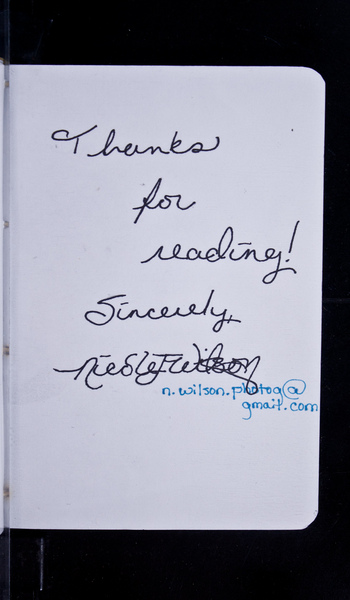 Thanks
for
reading!
Sincerely,
Nicole Wilson
n.wilson.photog@
gmail.com